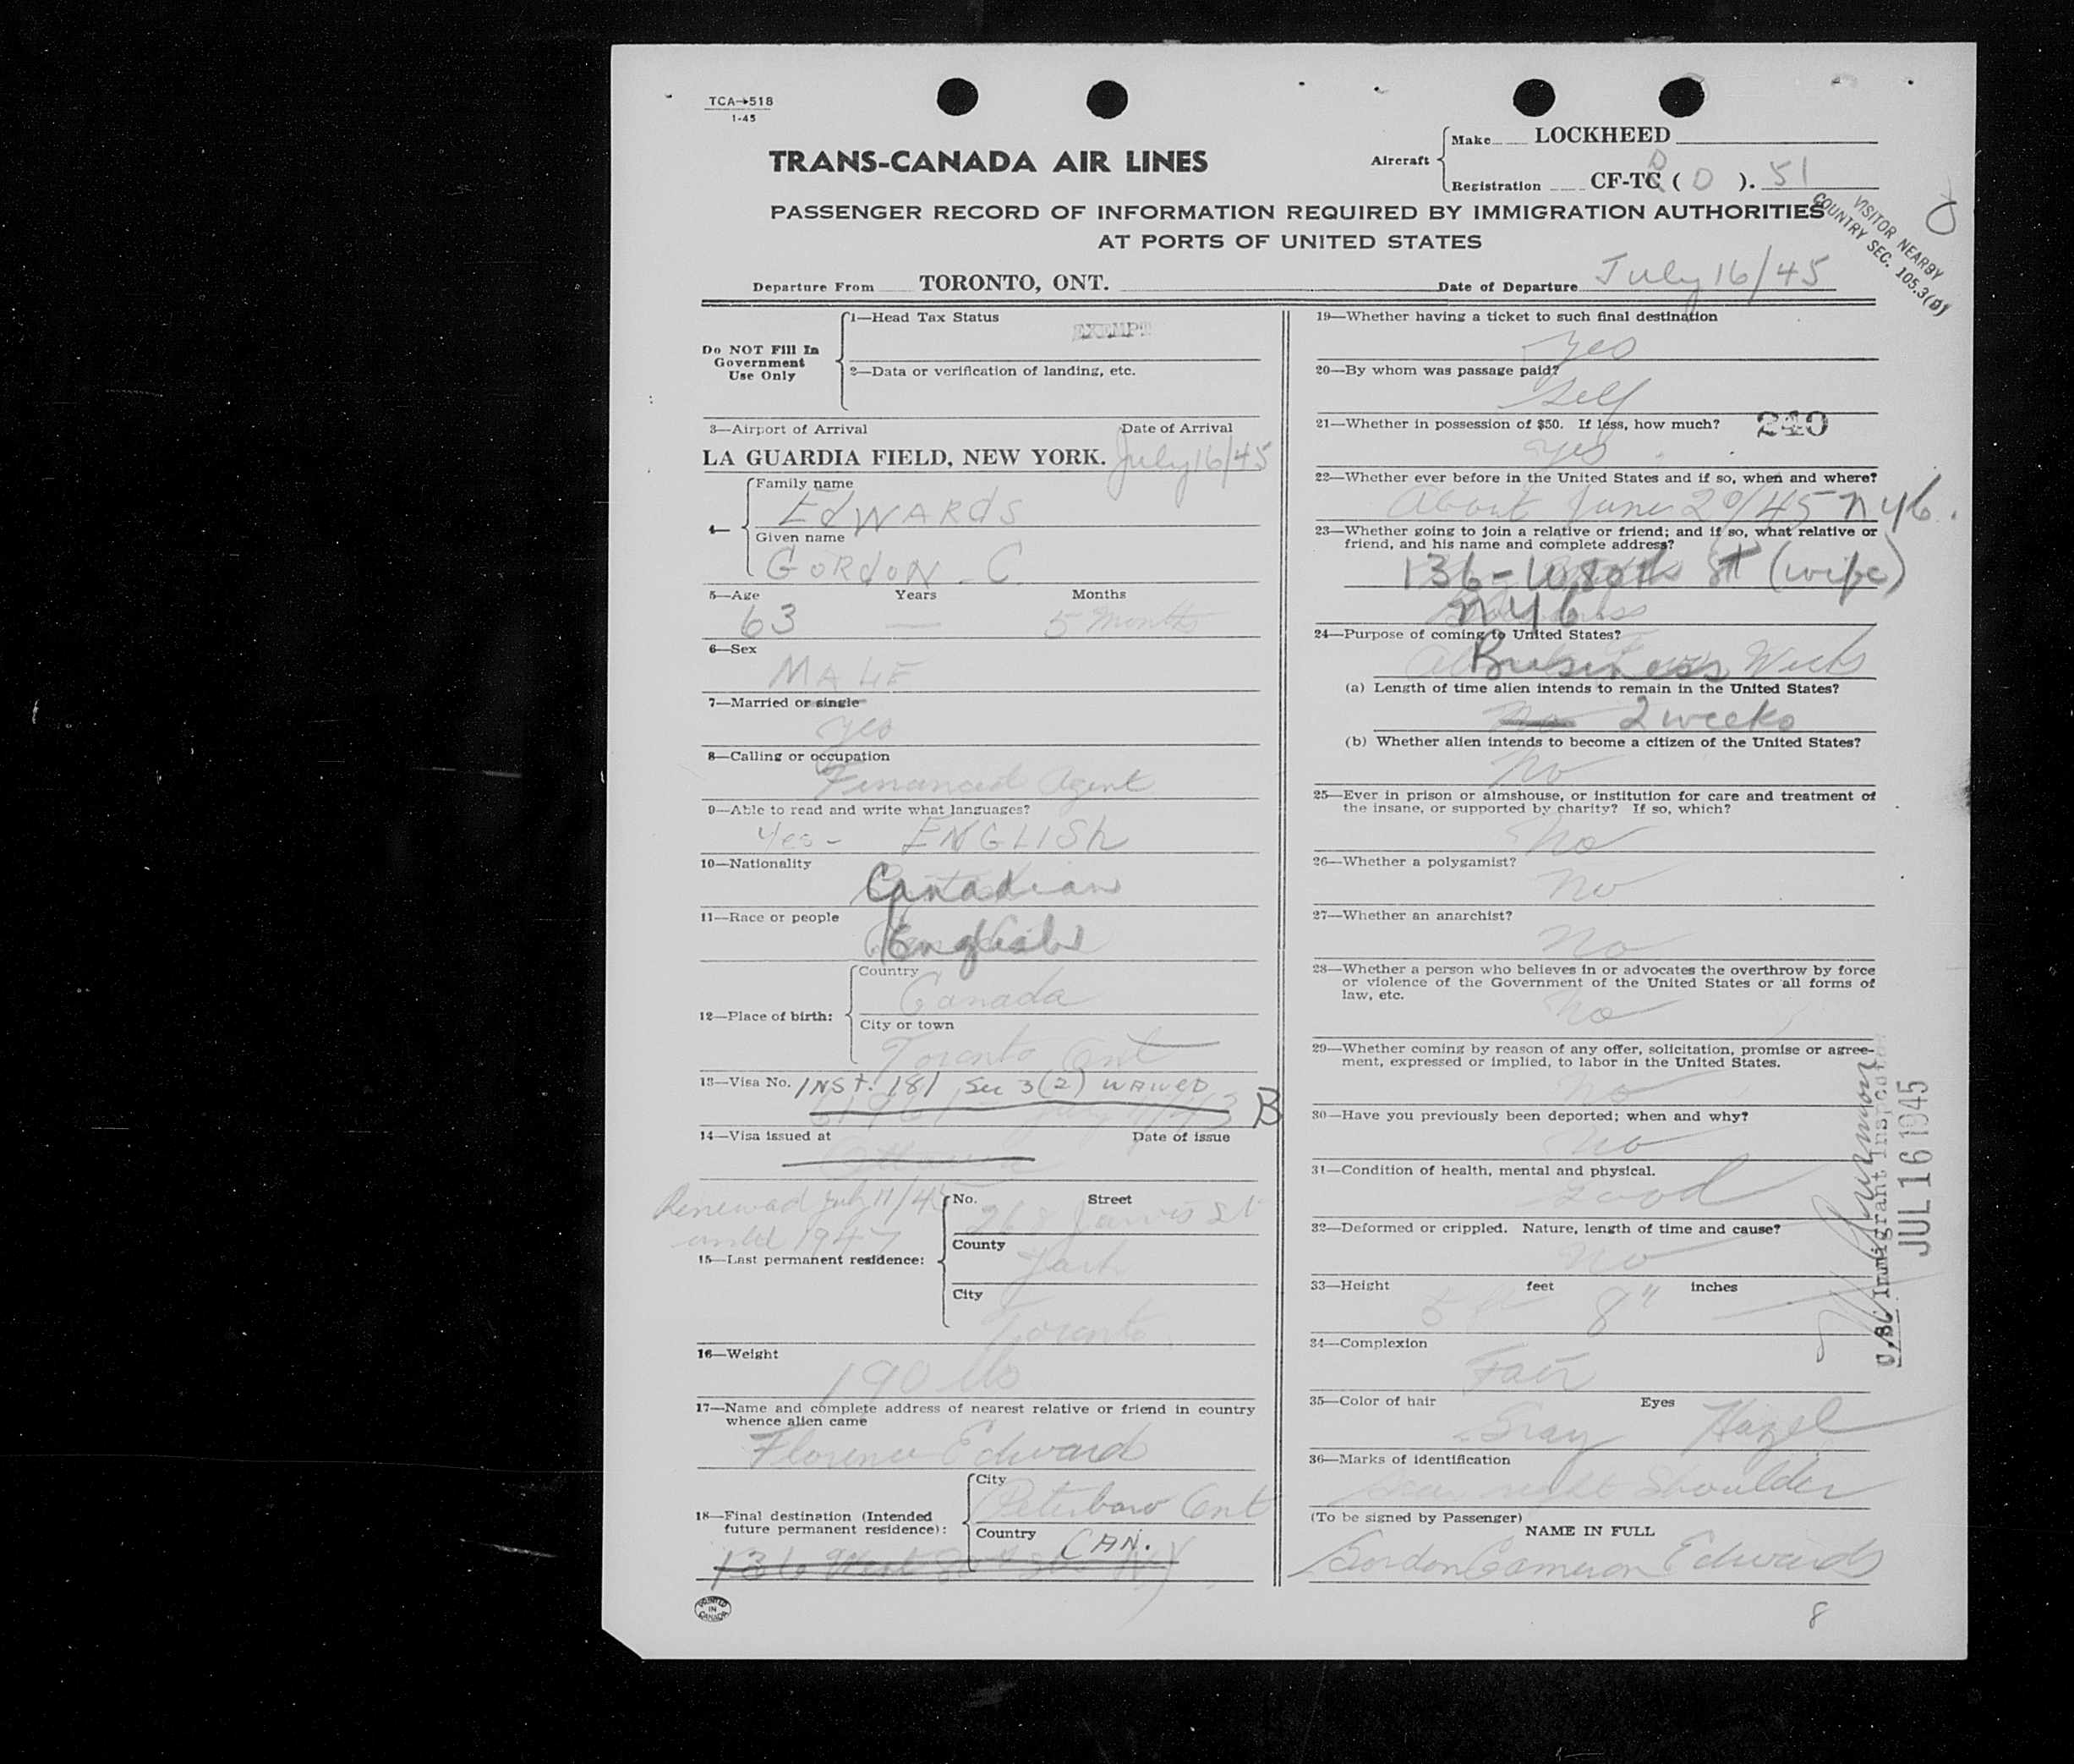 TCA-518
1-45
TRANS-CANADA AIR LINES
Aircraft
Make LOCKHEED
Registration CF-TC ( D ). 51
PASSENGER RECORD OF INFORMATION REQUIRED BY IMMIGRATION AUTHORITIES
AT PORTS OF UNITED STATES
VISITOR NEARBY
COUNTRY SEC. 105.3(b)
Departure From TORONTO, ONT. Date of Departure July 16/45
Do NOT Fill In
Government
Use Only
1—Head Tax Status
EXEMPT
2—Data or verification of landing, etc.
3—Airport of Arrival Date of Arrival
LA GUARDIA FIELD, NEW YORK. July 16/45
4—
Family name
EdWARdS
Given name
GORdON - C.
5—Age Years Months
63 — 5 Months
6—Sex
MALE
7—Married or single
yes
8—Calling or occupation
Financial Agent
9—Able to read and write what languages?
Yes - ENGLISh
10—Nationality
Canadian
11—Race or people
English
12—Place of birth:
Country
Canada
City or town
Toronto Ont
13—Visa No. INST. 181 Sec 3(2) WAIVED
B
14—Visa issued at Date of issue
Ottawa
Renewed July 11/45
until 1947
15—Last permanent residence:
No. Street
268 Jarvis St
County
York
City
Toronto
16—Weight
190 lbs
17—Name and complete address of nearest relative or friend in country
whence alien came
Florence Edwards
18—Final destination (Intended
future permanent residence):
City
Peterboro Ont
Country
CAN.
136 West
PRINTED
IN
CANADA
19—Whether having a ticket to such final destination
yes
20—By whom was passage paid?
Self
21—Whether in possession of $50. If less, how much? 240
yes
22—Whether ever before in the United States and if so, when and where?
About June 20/45 NYC.
23—Whether going to join a relative or friend; and if so, what relative or
friend, and his name and complete address?
136- St (wife)
NYC
24—Purpose of coming to United States?
Business Weeks
(a) Length of time alien intends to remain in the United States?
No 2 weeks
(b) Whether alien intends to become a citizen of the United States?
No
25—Ever in prison or almshouse, or institution for care and treatment of
the insane, or supported by charity? If so, which?
No
26—Whether a polygamist?
No
27—Whether an anarchist?
No
28—Whether a person who believes in or advocates the overthrow by force
or violence of the Government of the United States or all forms of
law, etc.
No
29—Whether coming by reason of any offer, solicitation, promise or agree-
ment, expressed or implied, to labor in the United States.
No
30—Have you previously been deported; when and why?
No
31—Condition of health, mental and physical.
Good
32—Deformed or crippled. Nature, length of time and cause?
No
33—Height feet inches
5 ft 8"
34—Complexion
Fair
35—Color of hair Eyes
Gray Hazel
36—Marks of identification
right Shoulder
(To be signed by Passenger)
NAME IN FULL
Gordon Cameron Edwards
8
Immigrant Inspector
JUL 16 1945